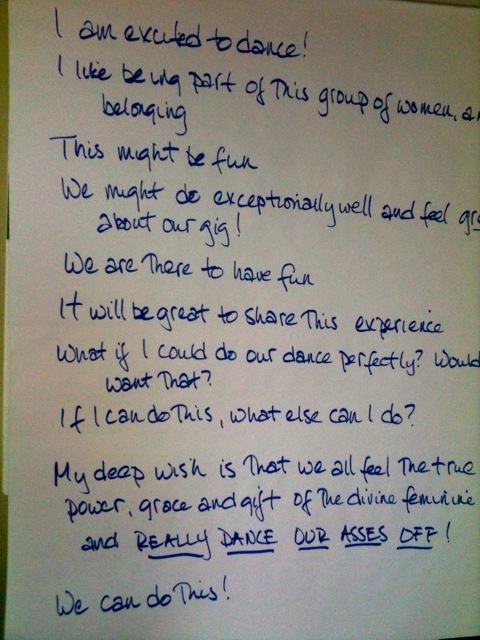 I am excited to dance!
I like being part of this group of women, an
belonging
This might be fun
We might do exceptionally well and feel gre
about our gig!
We are there to have fun
It will be great to share this experience
What if I could do our dance perfectly? Would
want that?
If I can do this, what else can I do?
My deep wish is that we all feel the true
power, grace and gift of the divine feminine
and REALLY DANCE OUR ASSES OFF!
We can do this!